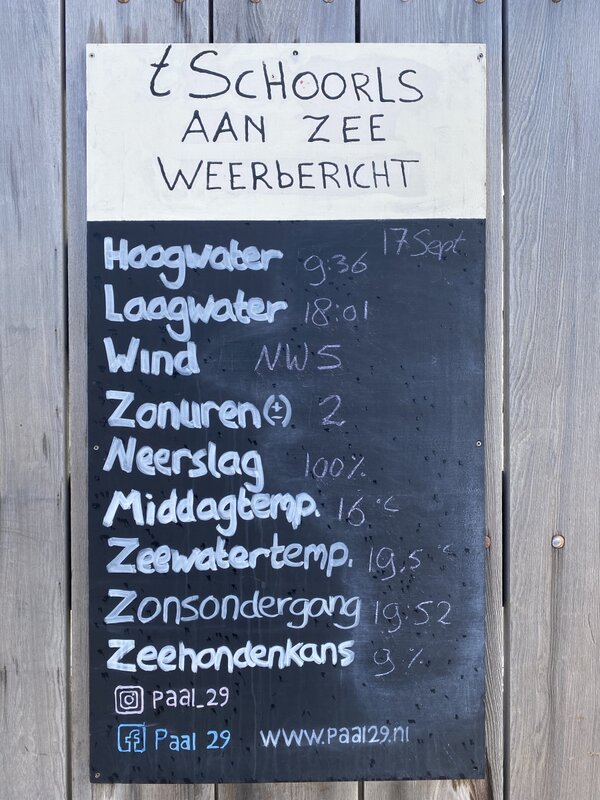 t SCHOORLS
AAN ZEE
WEERbERICHT
17 Sept
Hoogwater 9:36
Laagwater 18:01
Wind NW 5
Zonuren (±) 2
Neerslag 100%
Middagtemp. 16 °C
Zeewatertemp. 19,5 °C
Zonsondergang 19:52
Zeehondenkans 9 %
Paal_29
Paal 29 www.paal29.nl